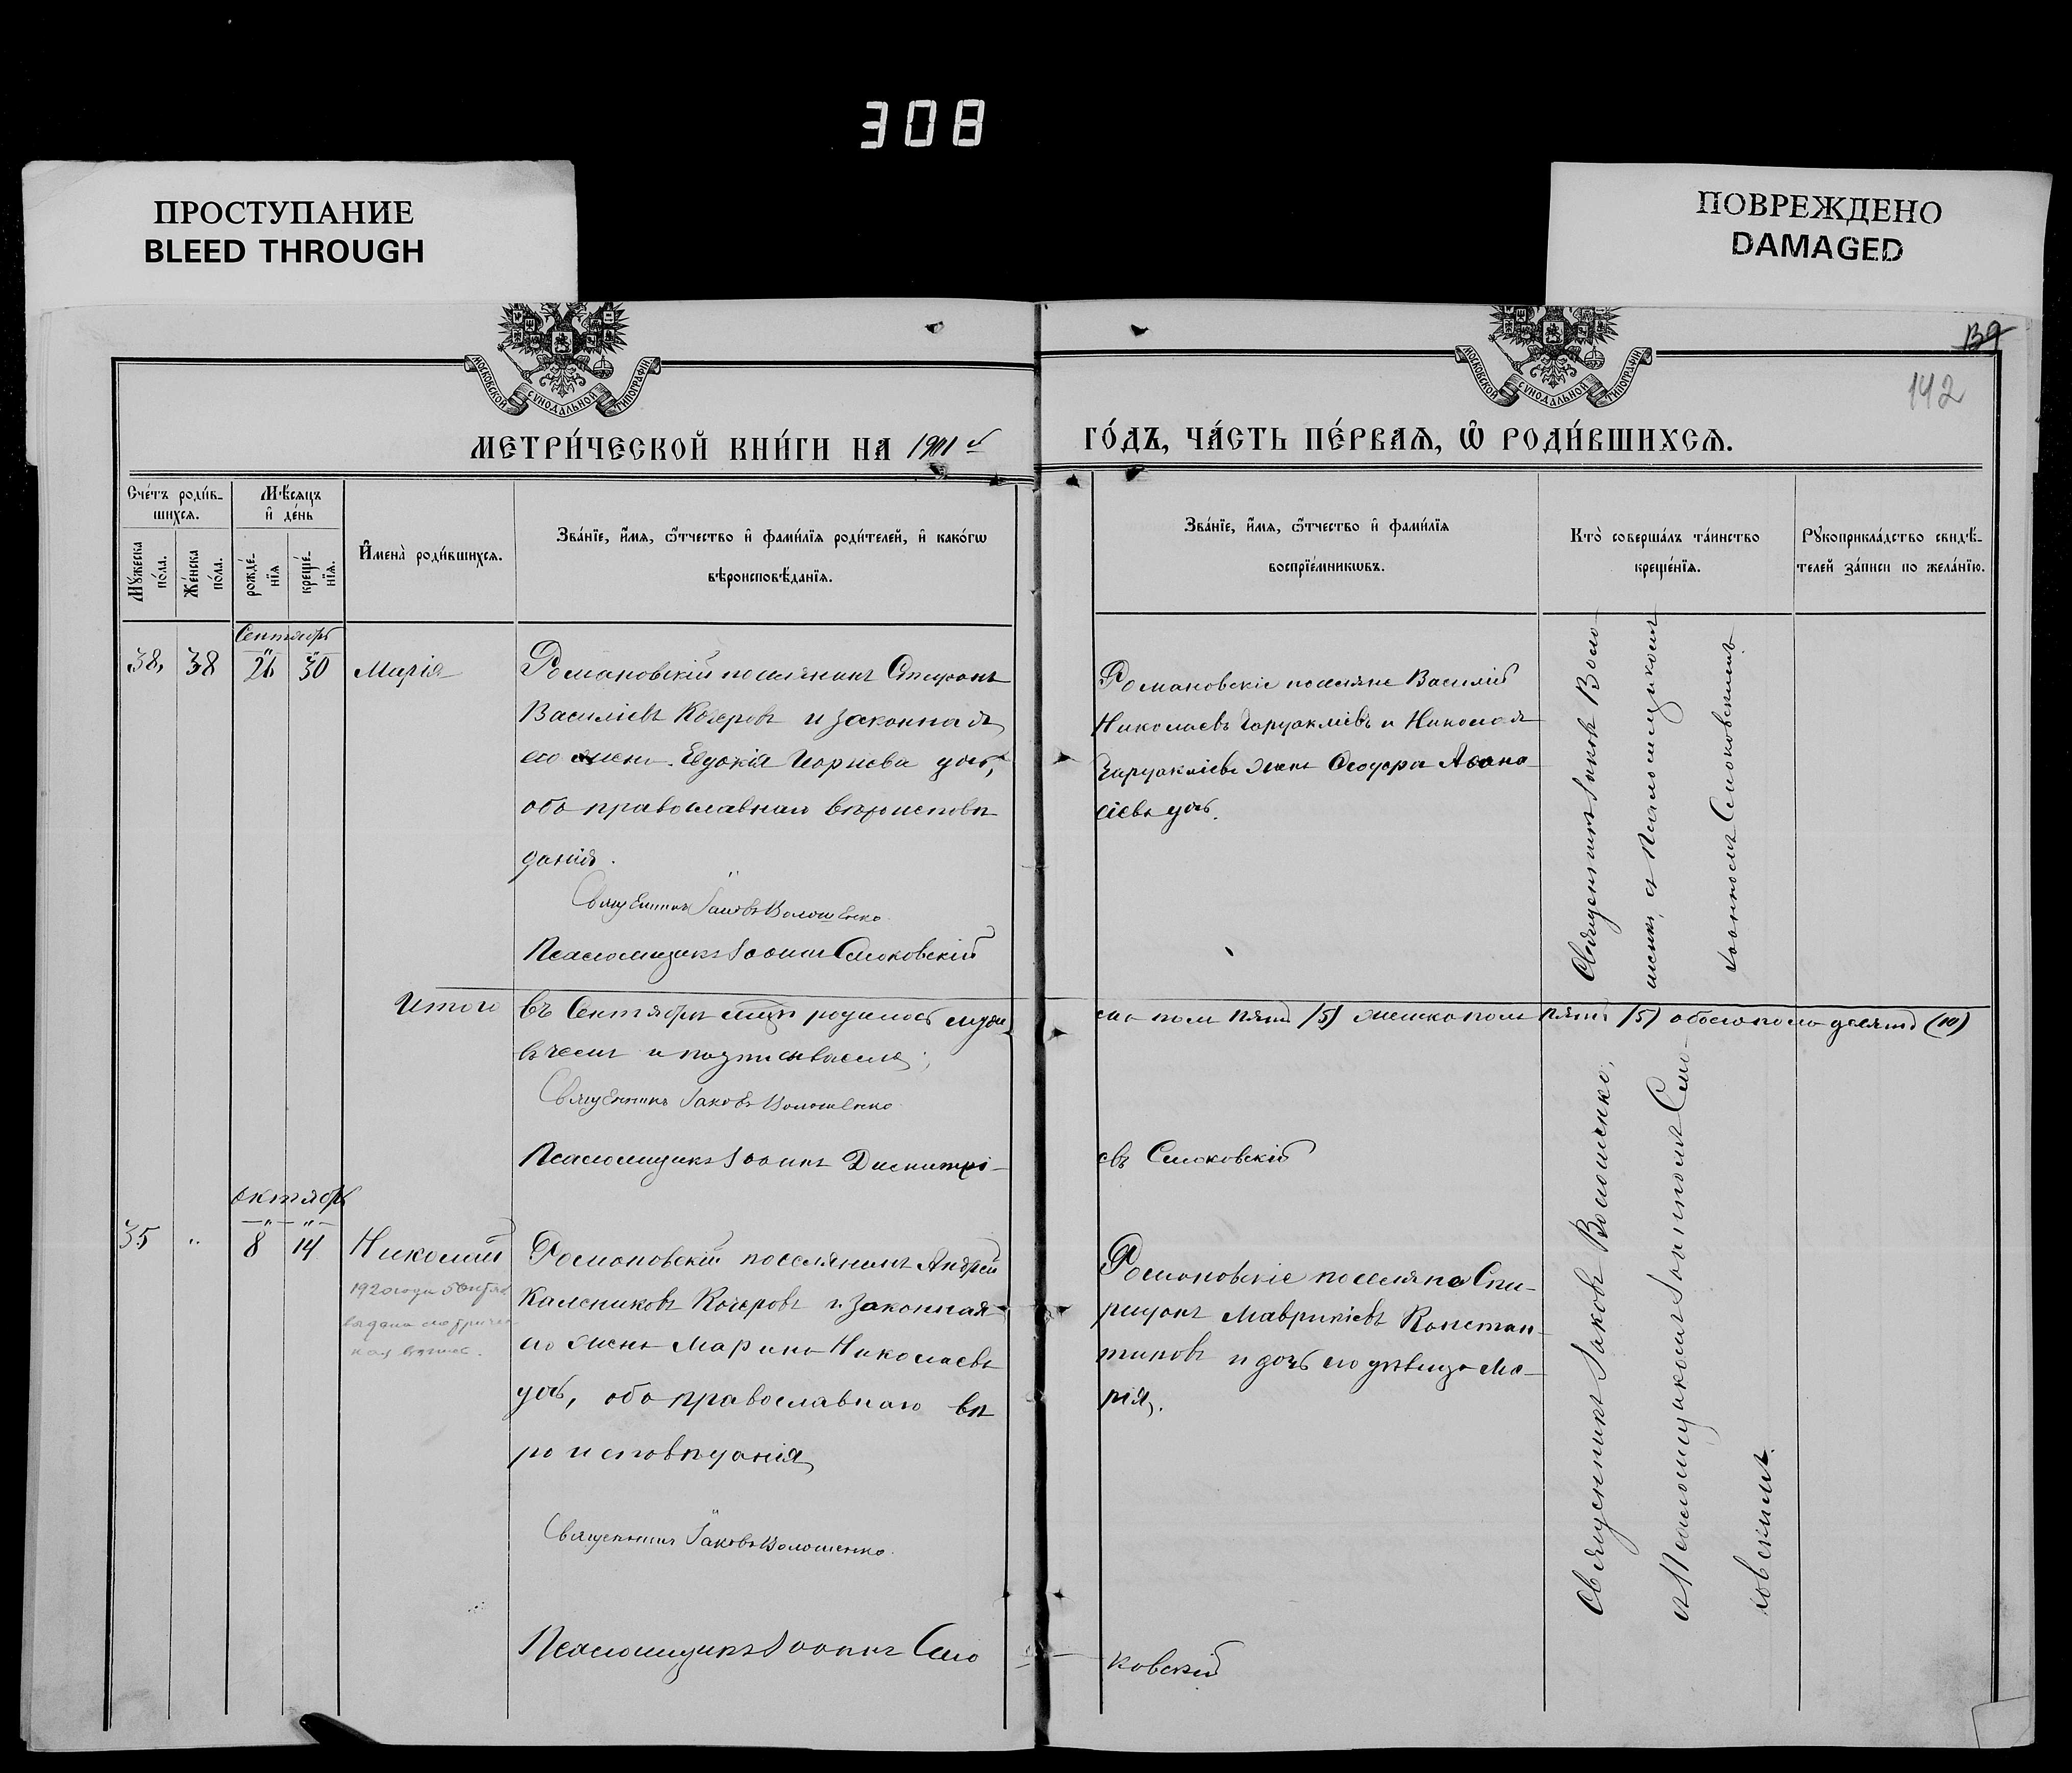 308
ПРОСТУПАНИЕ
BLEED THROUGH
ПОВРЕЖДЕНО
DAMAGED
МОСКОВСКОЙ СУНОДАЛЬНОЙ ТИПОГРАФІИ
МОСКОВСКОЙ СУНОДАЛЬНОЙ ТИПОГРАФІИ
139
142
МЕТРИ́ЧЕСКОЙ КНИ́ГИ НА 1901 й
ГО́ДЪ, ЧА́СТЬ ПЕ́РВАѦ, Ѡ҆ РОДИ́ВШИХСѦ.
Сче́тъ роди́в-
шихсѧ.
Мѣ́сѧцъ
и҆ де́нь
Мꙋ́жеска по́ла.
Же́нска по́ла.
рожде́-нїѧ
креще́-нїѧ.
И҆мена̀ роди́вшихсѧ.
Зва́нїе, и҆́мѧ, ѻ҆́тчество и҆ фами́лїѧ роди́телей, и҆ како́гѡ
вѣроисповѣ́данїѧ.
Зва́нїе, и҆́мѧ, ѻ҆́тчество и҆ фами́лїѧ
воспрїе́мникѡвъ.
Кто̀ соверша́лъ та́инство
креще́нїѧ.
Рꙋкоприкла́дство свидѣ́-
телей за́писи по жела́нїю.
Сентябрь
38, 38 26 30 Марія
Романовскій поселянинъ Спиридонъ
Василіевъ Кочеровъ и законная
его жена Евдокія Георгіева дочь,
оба православнаго вѣроисповѣ
данія.
Священникъ Іаковъ Волошенко.
Псаломщикъ Іоаннъ Смоковскій
Романовскіе поселяне Василій
Николаевъ и Николая
жена Ѳеодора Аѳана
сіева дочь.
Священникъ Іаковъ Воло-
шенко, съ Псаломщикомъ
Іоанномъ Смоковскимъ.
Итого въ Сентябрѣ мцѣ родилось муже
ска пола пять (5) женска пола пять (5) обоего пола десять (10)
въ чемъ и подписываемся;
Священникъ Іаковъ Волошенко
Псаломщикъ Іоаннъ Димитрі-
евъ Смоковскій
октябрь
35 " 8 14 Николай
1920 года 5 Октяб.
выдана метричес-
кая выпис.
Романовскій поселянинъ Андрей
Калениковъ Кочеровъ и законная
его жена Марина Николаева
дочь, оба православнаго вѣ
роисповѣданія
Священникъ Іаковъ Волошенко.
Псаломщикъ Іоаннъ Смо
ковскій
Романовскіе поселяне Спи-
ридонъ Маврикіевъ Констан-
тиновъ и дочь его дѣвица Ма-
рія.
Священникъ Іаковъ Волошенко,
съ Псаломщикомъ Іоанномъ Смо-
ковскимъ.